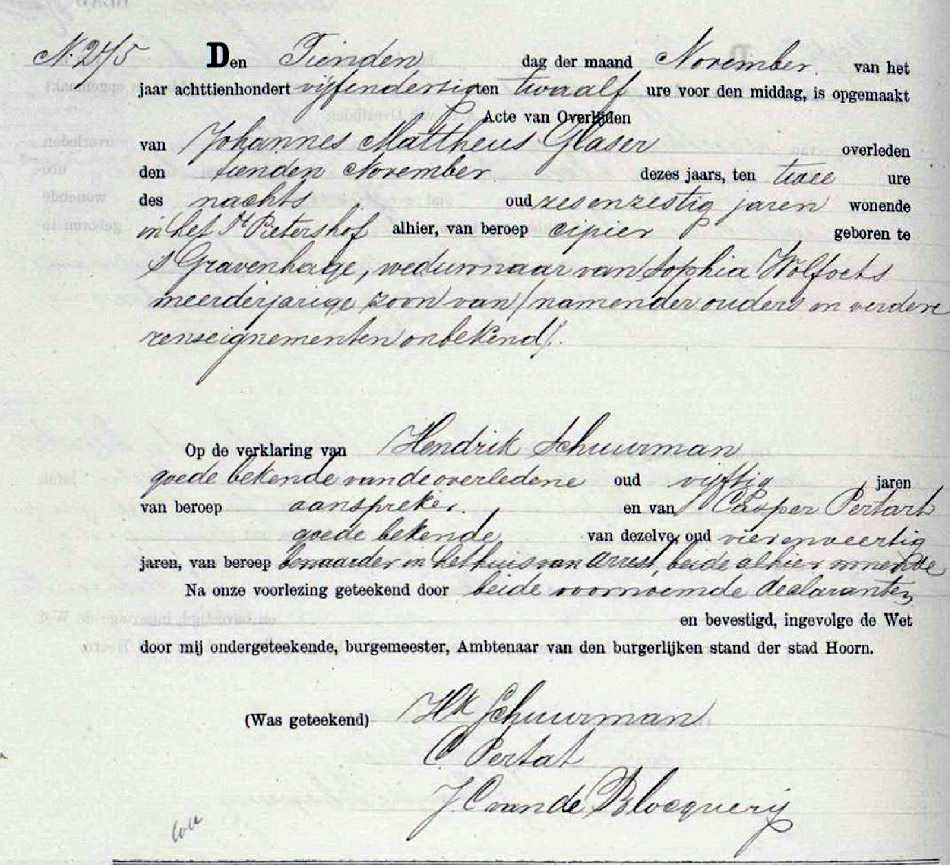 N. 245 Den Tienden dag der maand November van het
jaar achttienhonderd vijfendertig ten twaalf ure voor den middag, is opgemaakt
Acte van Overlijden
van Johannes Mattheus Glaser overleden
den tienden November dezes jaars, ten twee ure
des nachts oud zesenzestig jaren wonende
in het St Pietershof alhier, van beroep cipier geboren te
s Gravenhage, weduwnaar van Sophia Wolfoets
meerderjarige zoon van (namen der ouders en verdere
renseignementen onbekend).
Op de verklaring van Hendrik Schuurman
goede bekende van de overledene oud vijftig jaren
van beroep aanspreker en van Casper Pertat
goede bekende van dezelve, oud vierenveertig
jaren, van beroep bewaarder in het huis van arrest, beide alhier wonende
Na onze voorlezing geteekend door beide voornoemde declaranten
en bevestigd, ingevolge de Wet
door mij ondergeteekende, burgemeester, Ambtenaar van den burgerlijken stand der stad Hoorn.
(Was geteekend) Hk Schuurman
C. Pertat
J. C. van de Blocquerij